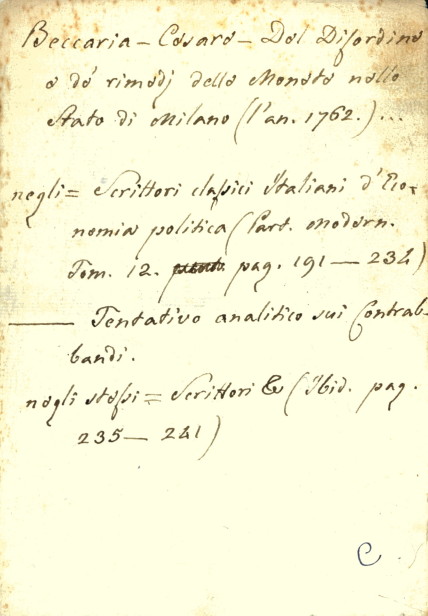 Beccaria - Cesare - Del Disordine
e de' rimedj delle Monete nello
Stato di Milano (l'an. 1762.) ...
negli = Scrittori classici Italiani d'Eco=
nomia politica (Part. modern.
Tom. 12. pag. 191 — 234)
—— Tentativo analitico sui Contrab-
bandi.
negli stessi = Scrittori &c (Ibid. pag.
235 — 241)
C.